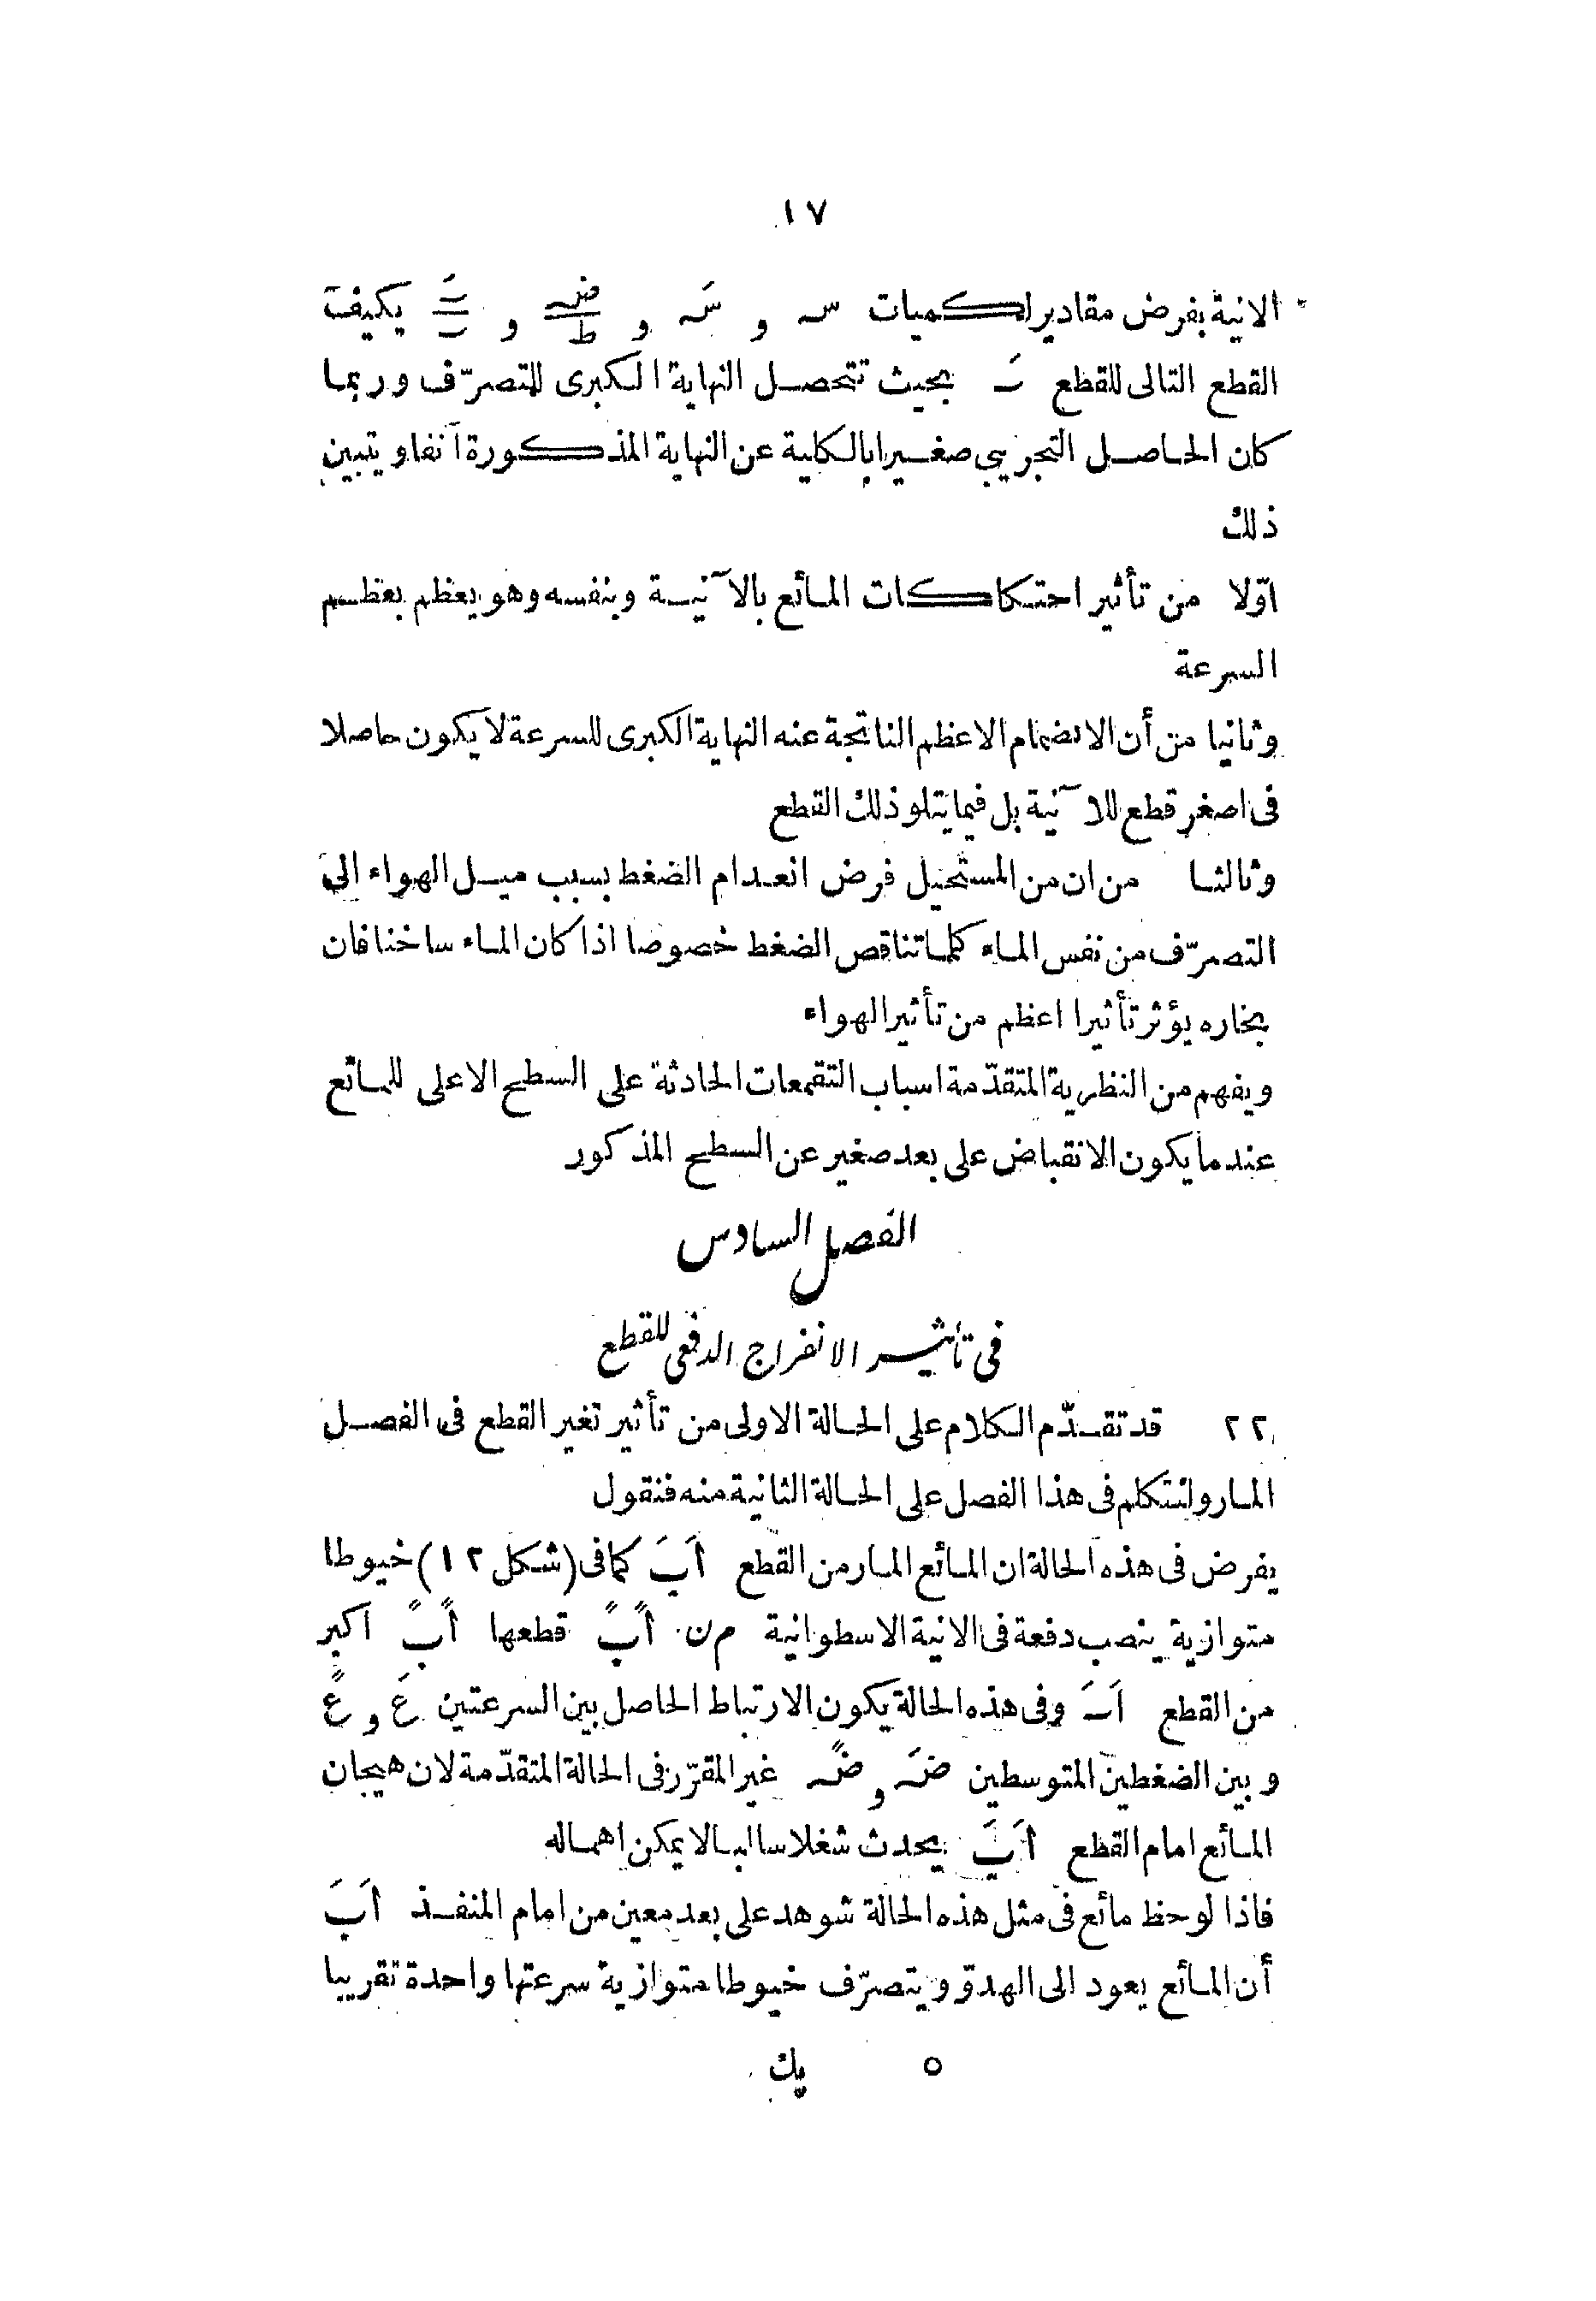 ١٧
الانية بفرض مقادير الكميات سـ و سَـ و ضـ/ط و تَـ/تـ يكيف
القطع التالى للقطع تَـ بحيث تتحصل النهاية الكبرى للتصرّف وربما
كان الحاصل التجريبى صغيرا بالكلية عن النهاية المذكورة آنفا ويتبين
ذلك
اوّلا من تأثير احتكاكات المائع بالآنية وبنفسه وهو يعظم بعظم
السرعة
وثانيا من أن الانضمام الاعظم الناتجة عنه النهاية الكبرى للسرعة لا يكون حاصلا
فى اصغر قطع للآنية بل فيما يتلو ذلك القطع
وثالثا من ان من المستحيل فرض انعدام الضغط بسبب ميل الهواء الى
التصرّف من نفس الماء كلما تناقص الضغط خصوصا اذا كان الماء ساخنا فان
بخاره يؤثر تأثيرا اعظم من تأثير الهواء
ويفهم من النظرية المتقدّمة اسباب التقمعات الحادثة على السطح الاعلى للمائع
عند ما يكون الانقباض على بعد صغير عن السطح المذكور
الفصل السادس
فى تأثير الانفراج الدفعى للقطع
٢٢ قد تقدّم الكلام على الحالة الاولى من تأثير تغير القطع فى الفصل
المار ولنتكلم فى هذا الفصل على الحالة الثانية منه فنقول
يفرض فى هذه الحالة ان المائع المار من القطع اَبَ كما فى (شكل ١٢) خيوطا
متوازية ينصب دفعة فى الانية الاسطوانية م ن اً بً قطعها اً بً اكبر
من القطع اَبَ وفى هذه الحالة يكون الارتباط الحاصل بين السرعتين عَ و عً
وبين الضغطين المتوسطين ضَـ و ضًـ غير المقرّر فى الحالة المتقدّمة لان هيجان
المائع امام القطع اَبَ يحدث شغلا سالبا لا يمكن اهماله
فاذا لوحظ مائع فى مثل هذه الحالة شوهد على بعد معين من امام المنفذ اَبَ
أن المائع يعود الى الهدوّ ويتصرّف خيوطا متوازية سرعتها واحدة تقريبا
٥ يك